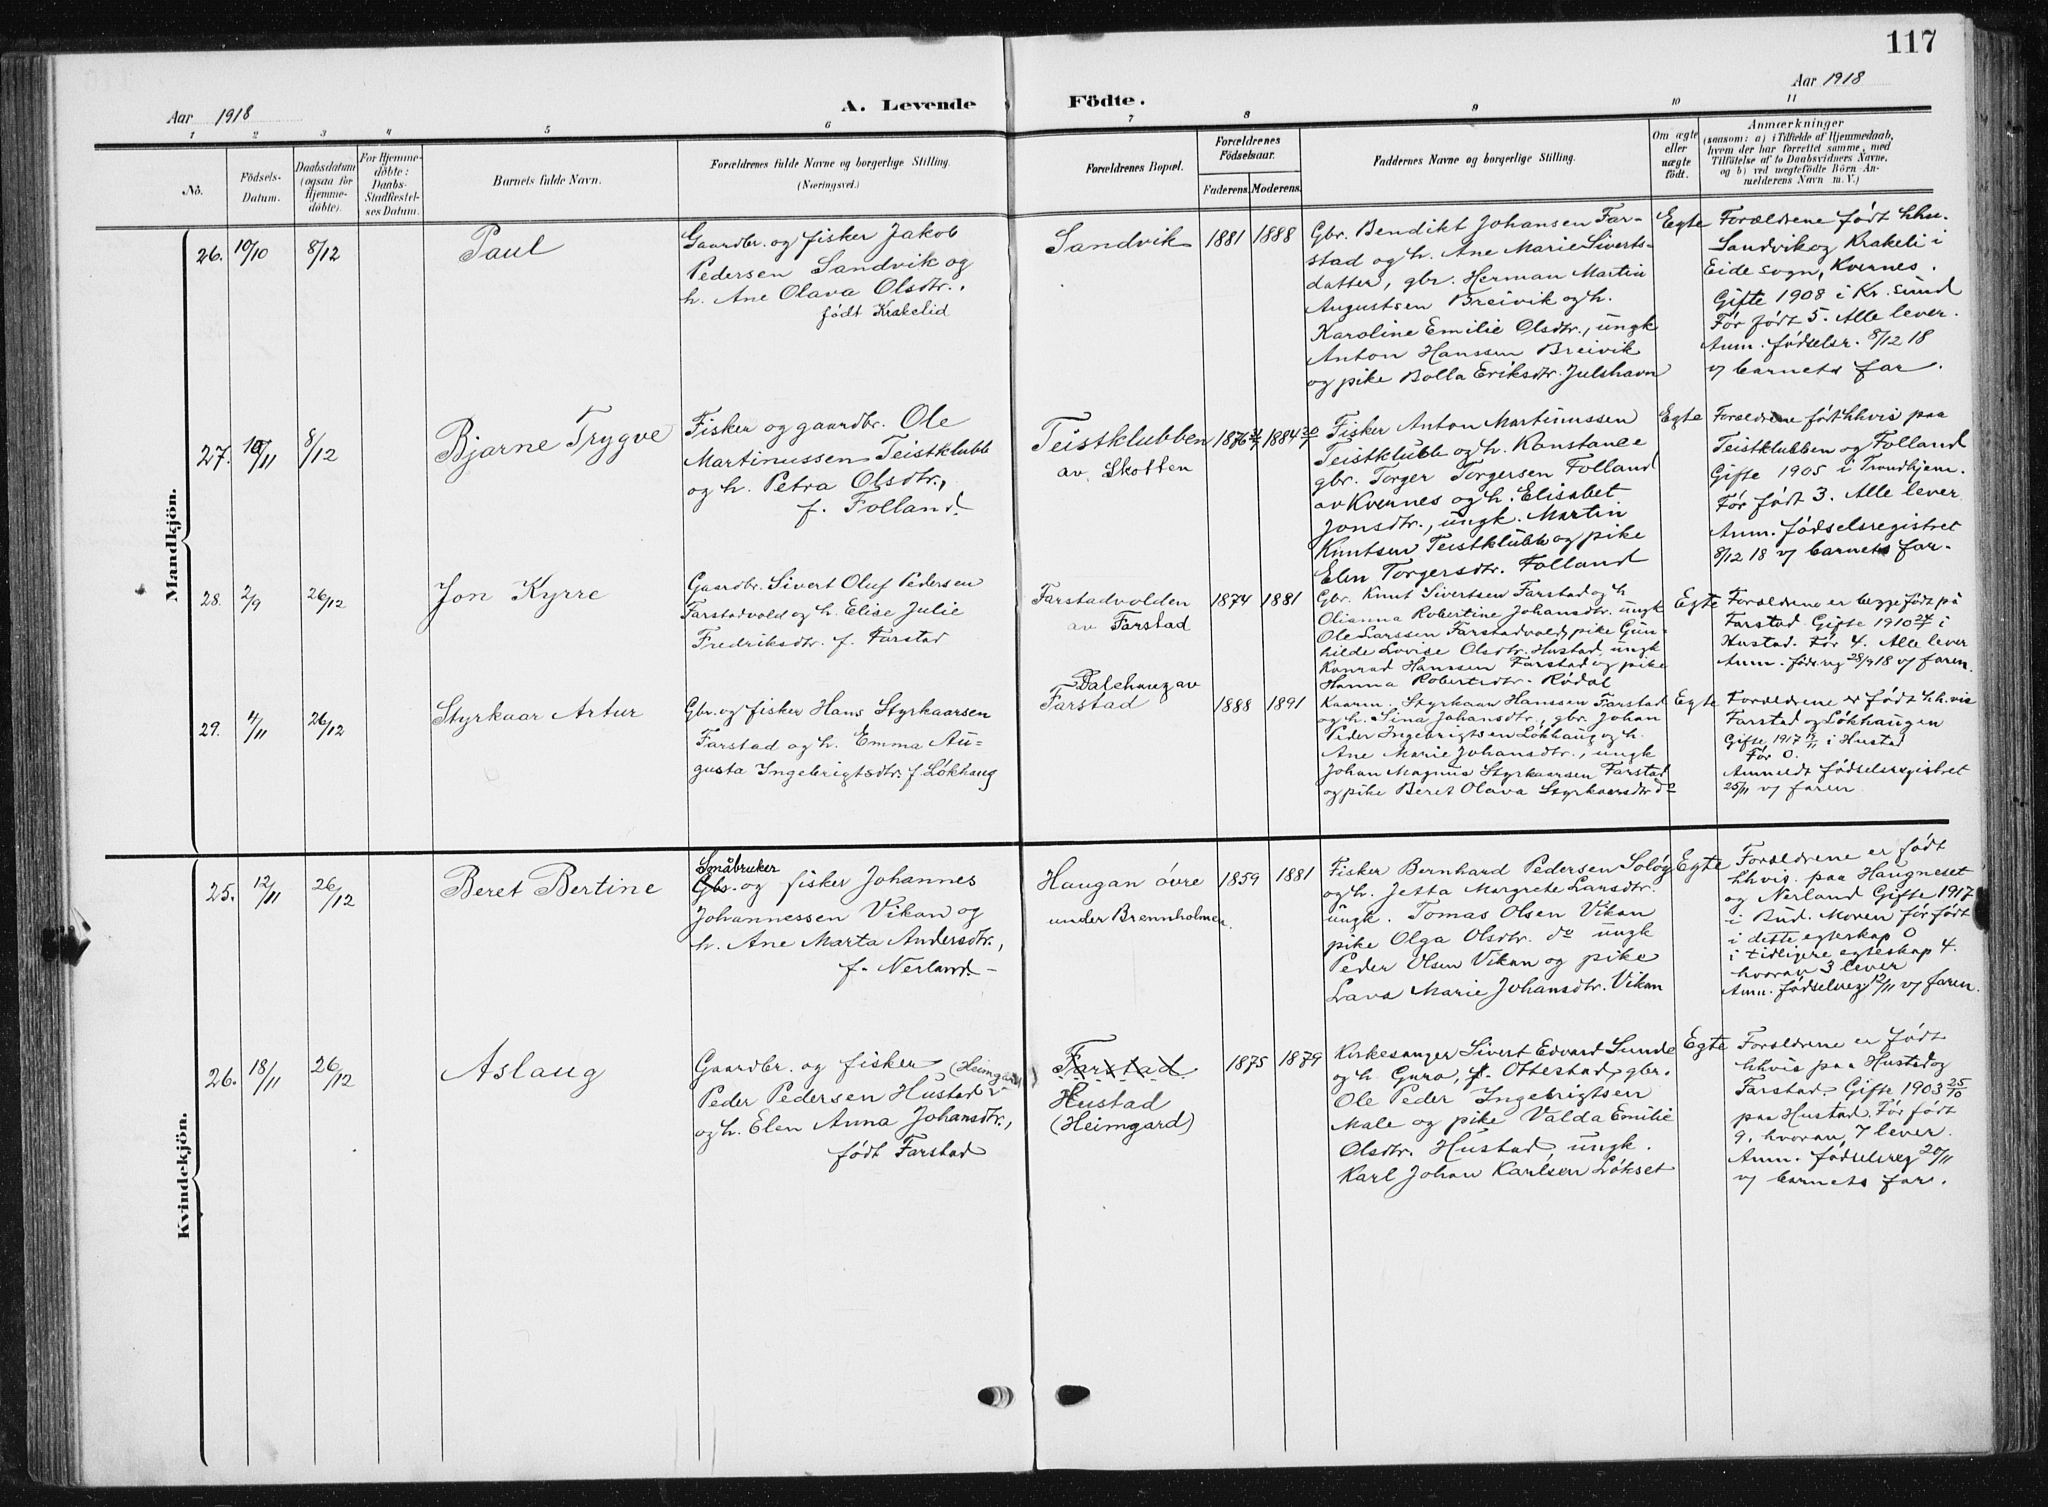 117
Aar 1918
A. Levende Födte.
Aar 1918
1 2 3 4 5 6 7 8 9 10 11
Nô.
Födsels-
Datum.
Daabsdatum
(ogsaa for
Hjemme-
döbte).
For Hjemme-
döbte:
Daabs-
Stadfestel-
ses Datum.
Barnets fulde Navn.
Forældrenes fulde Navne og borgerlige Stilling.
(Næringsvei.)
Forældrenes Bopæl.
Forældrenes
Födselsaar.
Faderens. Moderens.
Faddernes Navne og borgerlige Stilling.
Om ægte
eller
uægte
födt.
Anmærkninger
(saasom: a) i Tilfælde af Hjemmedaab,
hvem der har forrettet samme, med
Tilföielse af to Daabsvidners Navne,
og b) ved uægtefödte Börn An-
melderens Navn m. V.)
Mandkjön.
26. 10/10 8/12
Paul
Gaardbr. og fisker Jakob
Pedersen Sandvik og
h. Ane Olava Olsdtr.,
født Krakelid
Sandvik 1881 1888
Gbr. Bendikt Johansen Far-
stad og h. Ane Marie Siverts-
datter, gbr. Herman Martin
Augustsen Breivik og h.
Karoline Emilie Olsdtr., ungk
Anton Hanssen Breivik
og pike Bolla Eriksdtr. Julshavn
Egte
Forældrene født hhv.
Sandvik og Krakeli i
Eide sogn, Kvernes.
Gifte 1908 i Kr. sund
Før født 5. Alle lever.
Anm. fødselsr. 8/12 18
v/ barnets far.
27. 10/11 8/12
Bjarne Trygve
Fisker og gaardbr. Ole
Martinussen Teistklubb
og h. Petra Olsdtr.,
f. Folland.
Teistklubben
av Skotten
1876 1884
Fisker Anton Martinussen
Teistklubb og h. Konstanse
gbr. Torger Torgersen Folland
av Kvernes og h. Elisabet
Jonsdtr., ungk. Martin
Knutsen Teistklubb og pike
Elen Torgersdtr. Folland
Egte
Forældrene født hhvis paa
Teistklubben og Folland
Gifte 1905 i Trondhjem.
Før født 3. Alle lever
Anm. fødselsregistret
8/12 18 v/ barnets far-
28. 2/9 26/12
Jon Kyrre
Gaardbr. Sivert Oluf Pedersen
Farstadvold og h. Elise Julie
Fredriksdtr. f. Farstad
Farstadvolden
av Farstad
1874 1881
Gbr. Knut Sivertsen Farstad og h
Olianna Robertine Johansdtr. ungk
Ole Larssen Farstadvold, pike Gun-
hilde Lovise Olsdtr. Hustad, ungk
Konrad Hanssen Farstad og pike
Hanna Robertsdtr. Rødal
Egte
Forældrene er begge født på
Farstad Gifte 1910 24/7 i
Hustad. Før 4. Alle lever
Anm. føds.reg 28/9 18 v/ faren.
29. 11/11 26/12
Styrkaar Artur
Gbr. og fisker Hans Styrkaarsen
Farstad og h. Emma Au-
gusta Ingebrigtsdtr. f. Løkhaug
av
Farstad
1888 1891
Kaarm. Styrkaar Hanssen Farstad
og h. Sina Johansdtr., gbr. Johan
Peder Ingebrigtsen Løkhaug og h.
Ane Marie Johansdtr., ungk
Johan Magnus Styrkaarsen Farstad
og pike Beret Olava Styrkaarsdtr do
Egte
Forældrene er født hh.vis
Farstad og Løkhaugen
Gifte 1917 i Hustad
Før 0.
Anmeldt fødselsregistret
25/11 v/ faren
Kvindekjön.
25. 12/11 26/12
Beret Bertine
Småbruker
Gbr. og fisker Johannes
Johannessen Vikan og
h. Ane Marta Andersdtr.,
f. Nerland.-
Haugan øvre
under Brennholmen
1859 1881
Fisker Bernhard Pedersen Soløy
og h. Jetta Margrete Larsdtr.
ungk. Tomas Olsen Vikan
pike Olga Olsdtr. do ungk
Peder Olsen Vikan og pike
Lava Marie Johansdtr. Vikan
Egte
Forældrene er født
hhvis. paa Haugneset
og Nerland Gifte 1917
i Bud. Moren før født
i dette egteskap 0
i tidligere egteskap 4.
hvorav 3 lever
Anm. fødselsreg 12/11 v/ faren.
26. 18/11 26/12
Aslaug
Gaardbr. og fisker
Peder Pedersen Hustad (Heimgard)
og h. Elen Anna Johansdtr.,
født Farstad
Farstad
Hustad
(Heimgard)
1875 1879
Kirkesanger Sivert Edvard Sunde
og h. Guro, f. Ottestad, gbr.
Ole Peder Ingebrigtsen
Male og pike Valda Emilie
Olsdtr. Hustad, ungk.
Karl Johan Karlsen Løkset
Egte
Forældrene er født
hhvis paa Hustad og
Farstad. Gifte 1903 25/10
paa Hustad. Før født
9, hvorav 7 lever.
Anm. fødselsreg 20/11
v/ barnets far.